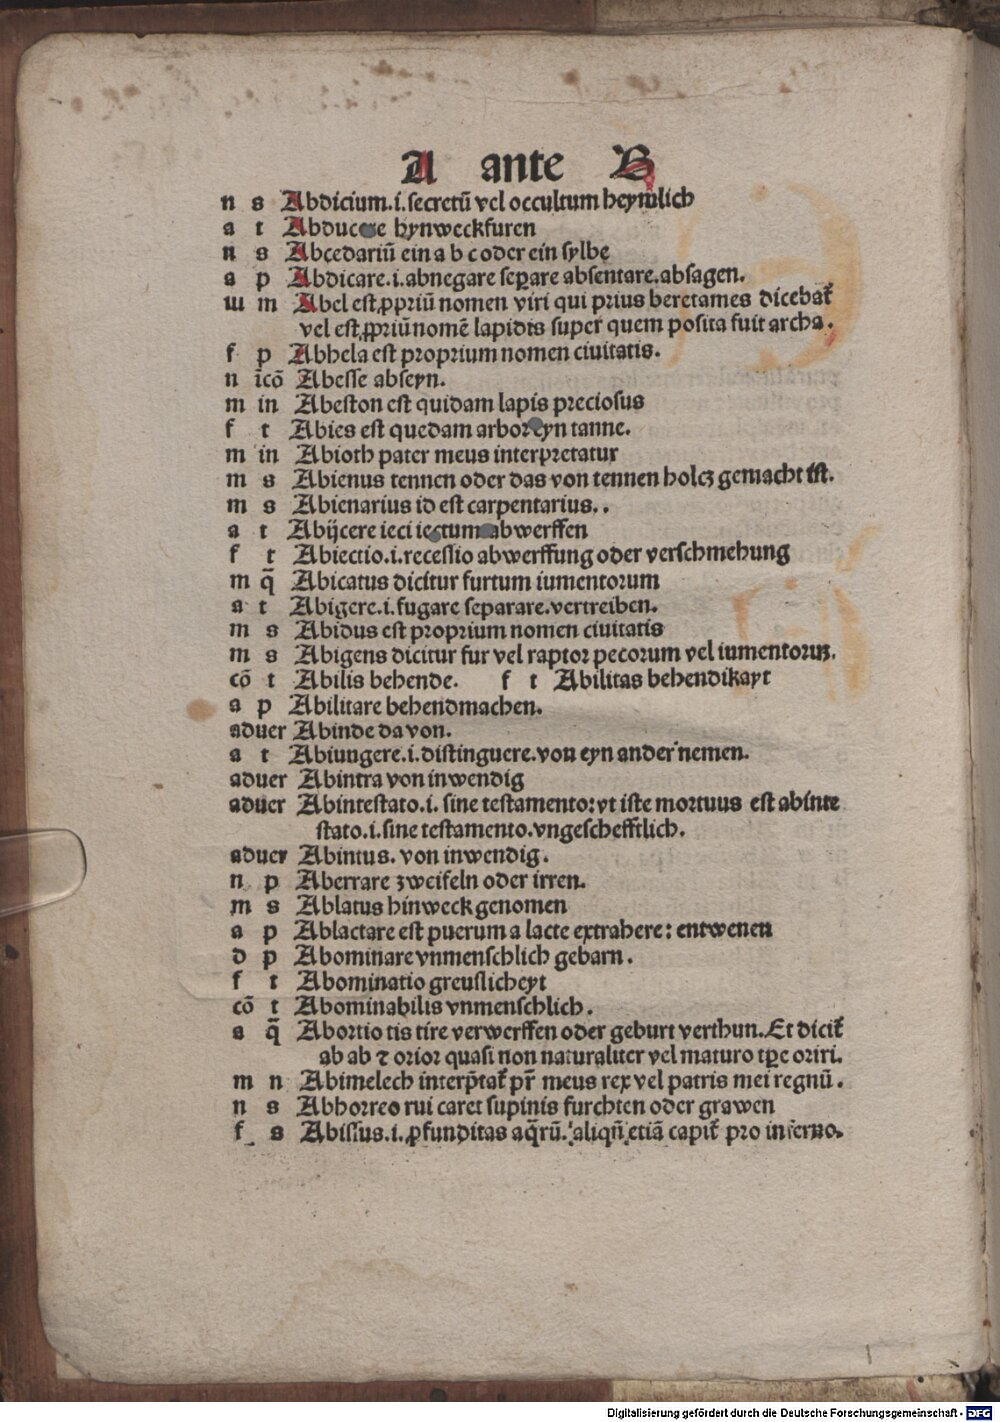 A ante B
n s Abdicium.i.secretū vel occultum heymlich
a t Abducere hynweckfuren
n s Abcedariū ein a b c oder ein sylbe
a p Abdicare.i.abnegare seꝑare absentare.absagen.
m m Abel est ꝓpriū nomen viri qui prius beretames dicebat᷑
vel est ꝓpriū nomē lapidis super quem posita fuit archa.
f p Abhela est proprium nomen ciuitatis.
n īcō Abesse abseyn.
m in Abeston est quidam lapis preciosus
f t Abies est quedam arbor eyn tanne.
m in Abioth pater meus interpretatur
m s Abienus tennen oder das von tennen holcz gemacht ist.
m s Abienarius id est carpentarius..
a t Abijcere ieci iectum abwerffen
f t Abiectio.i.recessio abwerffung oder verschmehung
m q̄ Abicatus dicitur furtum iumentorum
a t Abigere.i.fugare separare.vertreiben.
m s Abidus est proprium nomen ciuitatis
m s Abigens dicitur fur vel raptor pecorum vel iumentoruꝫ.
cō t Abilis behende. f t Abilitas behendikayt
a p Abilitare behendmachen.
aduer Abinde da von.
a t Abiungere.i.distinguere.von eyn ander nemen.
aduer Abintra von inwendig
aduer Abintestato.i. sine testamento:vt iste mortuus est abinte
stato.i.sine testamento.vngeschefftlich.
aduer Abintus. von inwendig.
n p Aberrare zweifeln oder irren.
m s Ablatus hinweck genomen
a p Ablactare est puerum a lacte extrahere: entwenen
d p Abominare vnmenschlich gebarn.
f t Abominatio greuslicheyt
cō t Abominabilis vnmenschlich.
a q̄ Abortio tis tire verwerffen oder geburt verthun.Et dicit᷑
ab ab ⁊ orior quasi non naturaliter vel maturo tꝑe oriri.
m n Abimelech interp̄tat᷑ pr̄ meus rex vel patris mei regnū.
n s Abhorreo rui caret supinis furchten oder grawen
f s Abissus.i.ꝓfunditas aq̄rū. aliqn̄ etiā capit᷑ pro inferno.
Digitalisierung gefördert durch die Deutsche Forschungsgemeinschaft - DFG